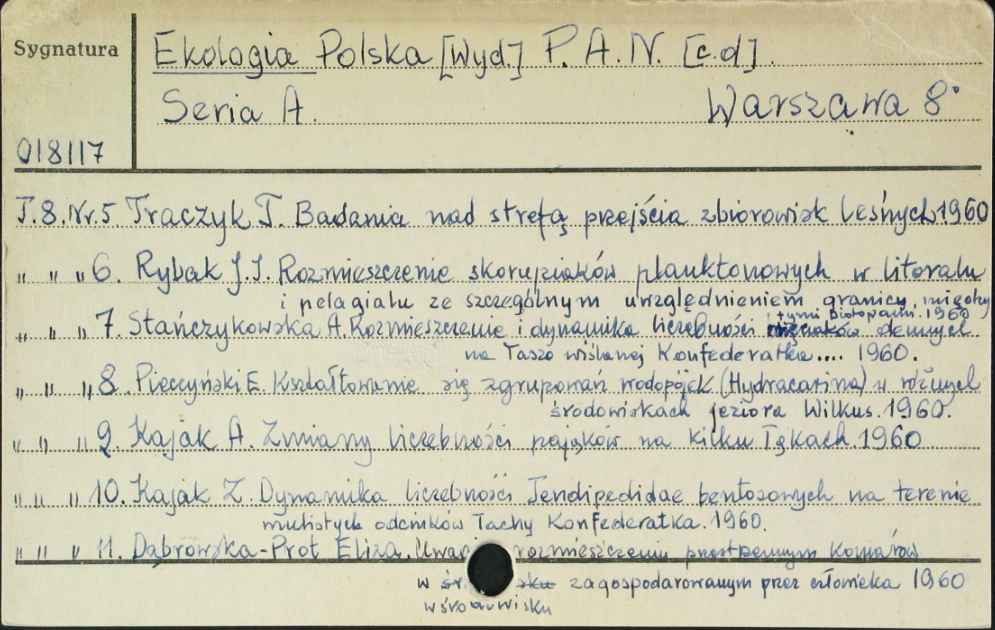 Sygnatura
Ekologia Polska [Wyd.] P. A. N. [c.d].
Seria A. Warszawa 8°
018117
T.8. Nr. 5 Traczyk T. Badania nad strefą przejścia zbiorowisk leśnych. 1960
" " " 6. Rybak J.I. Rozmieszczenie skorupiaków planktonowych w litoralu
i pelagialu ze szczególnym uwzględnieniem granicy między
tymi biotopami. 1960
" " " 7. Stańczykowska A. Rozmieszczenie i dynamika liczebności mięczaków dennych
na Tasze wiślanej Konfederatka.... 1960.
" " " 8. Pieczyński E. Kształtowanie się zgrupowań wodopójek (Hydracarina) w różnych
środowiskach jeziora Wilkus. 1960.
" " " 9. Kajak A. Zmiany liczebności pająków na kilku łąkach. 1960
" " " 10. Kajak Z. Dynamika liczebności Tendipedidae bentosowych na terenie
mulistych odcinków Tachy Konfederatka. 1960.
" " " 11. Dąbrowska-Prot Eliza. rozmieszczeniu przestrzennym komarów
w zagospodarowanym przez człowieka 1960
w środowisku